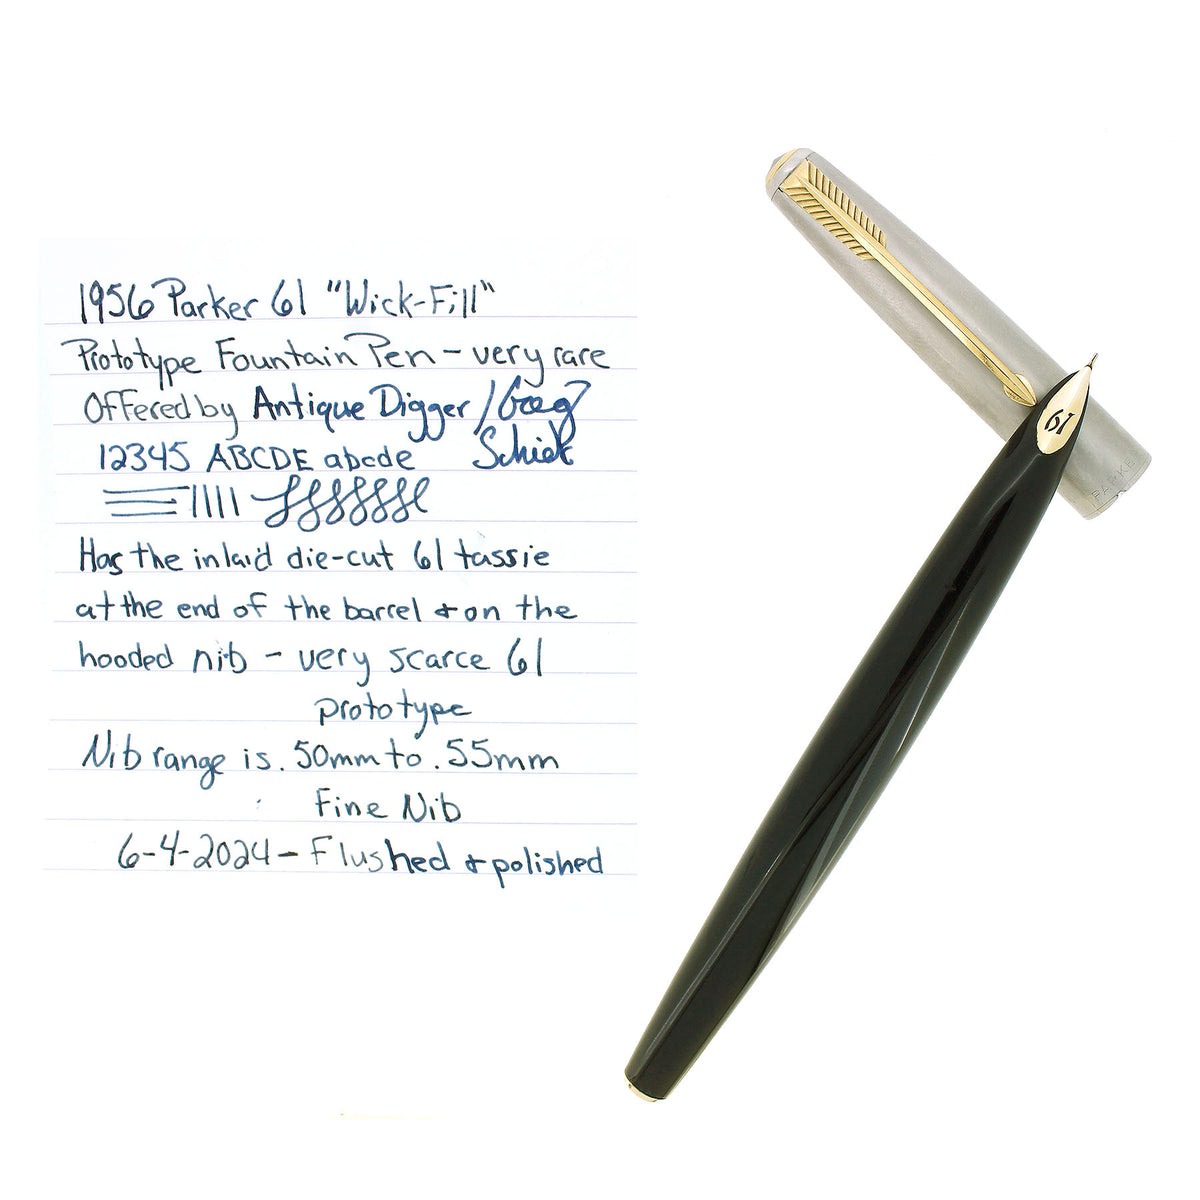 1956 Parker 61 "Wick-Fill"
Prototype Fountain Pen - very rare
Offered by Antique Digger / Greg
12345 ABCDE abcde Schiek
Has the inlaid die-cut 61 tassie
at the end of the barrel + on the
hooded nib - very scarce 61
prototype
Nib range is .50mm to .55mm
Fine Nib
6-4-2024 - Flushed + polished
61
PARKE